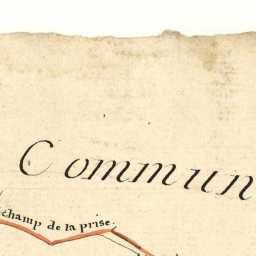 Commun
champ de la prise.